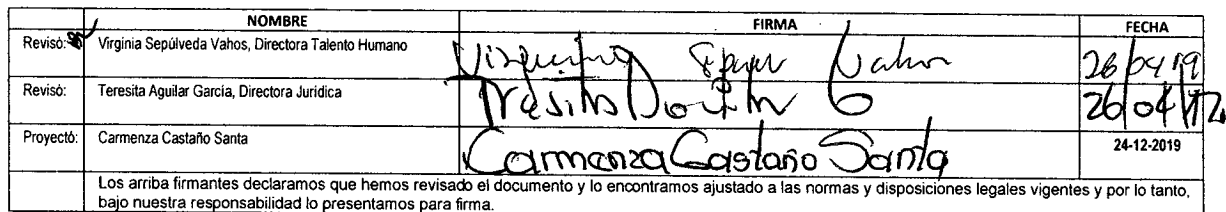 NOMBRE FIRMA FECHA
Revisó: Virginia Sepúlveda Vahos, Directora Talento Humano Vahos 26/04/19
Revisó: Teresita Aguilar García, Directora Jurídica 26/04/
Proyectó: Carmenza Castaño Santa Carmenza Castaño Santa 24-12-2019
Los arriba firmantes declaramos que hemos revisado el documento y lo encontramos ajustado a las normas y disposiciones legales vigentes y por lo tanto,
bajo nuestra responsabilidad lo presentamos para firma.